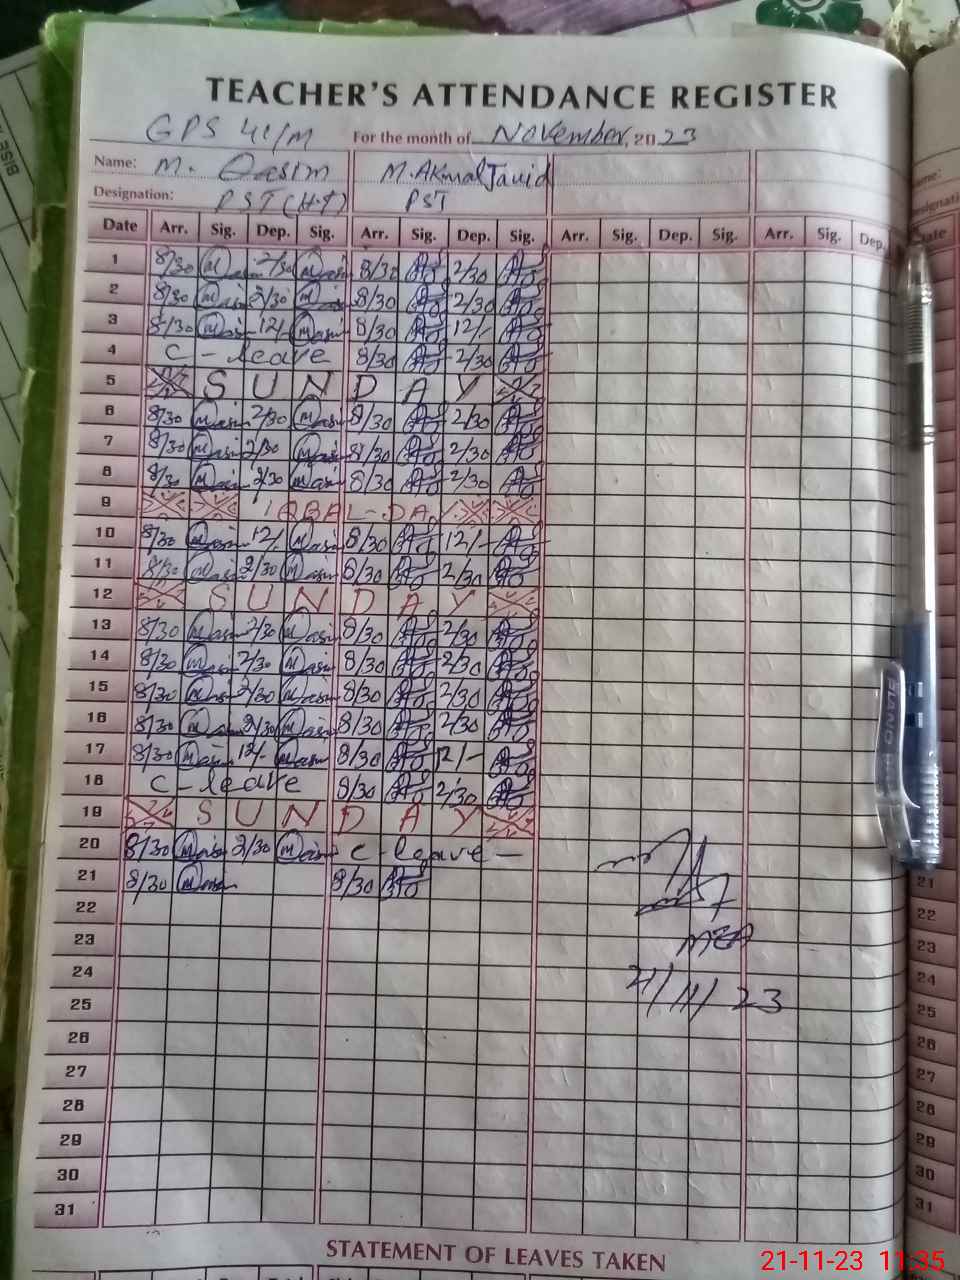 TEACHER'S ATTENDANCE REGISTER
GPS 41/M For the month of November, 2023
Name: M. Qasim M. Akmal Javid
Designation: PST (H.T) PST
Date Arr. Sig. Dep. Sig. Arr. Sig. Dep. Sig. Arr. Sig. Dep. Sig. Arr. Sig. Dep.
1 8/30 2/30 8/30 2/30
2 8/30 2/30 8/30 2/30
3 8/30 12/- 8/30 12/-
4 C-leave 8/30 2/30
5 SUNDAY
6 8/30 2/30 8/30 2/30
7 8/30 2/30 8/30 2/30
8 8/30 2/30 8/30 2/30
9 IQBAL-DAY
10 8/30 12/- 8/30 12/-
11 8/30 2/30 8/30 2/30
12 SUNDAY
13 8/30 2/30 8/30 2/30
14 8/30 2/30 8/30 2/30
15 8/30 2/30 8/30 2/30
16 8/30 2/30 8/30 2/30
17 8/30 12/- 8/30 12/-
18 C-leave 8/30 2/30
19 SUNDAY
20 8/30 2/30 C-leave-
21 8/30 8/30
22
23 MEA
24
25 21/11/23
26
27
28
29
30
31
STATEMENT OF LEAVES TAKEN
21-11-23 11:35